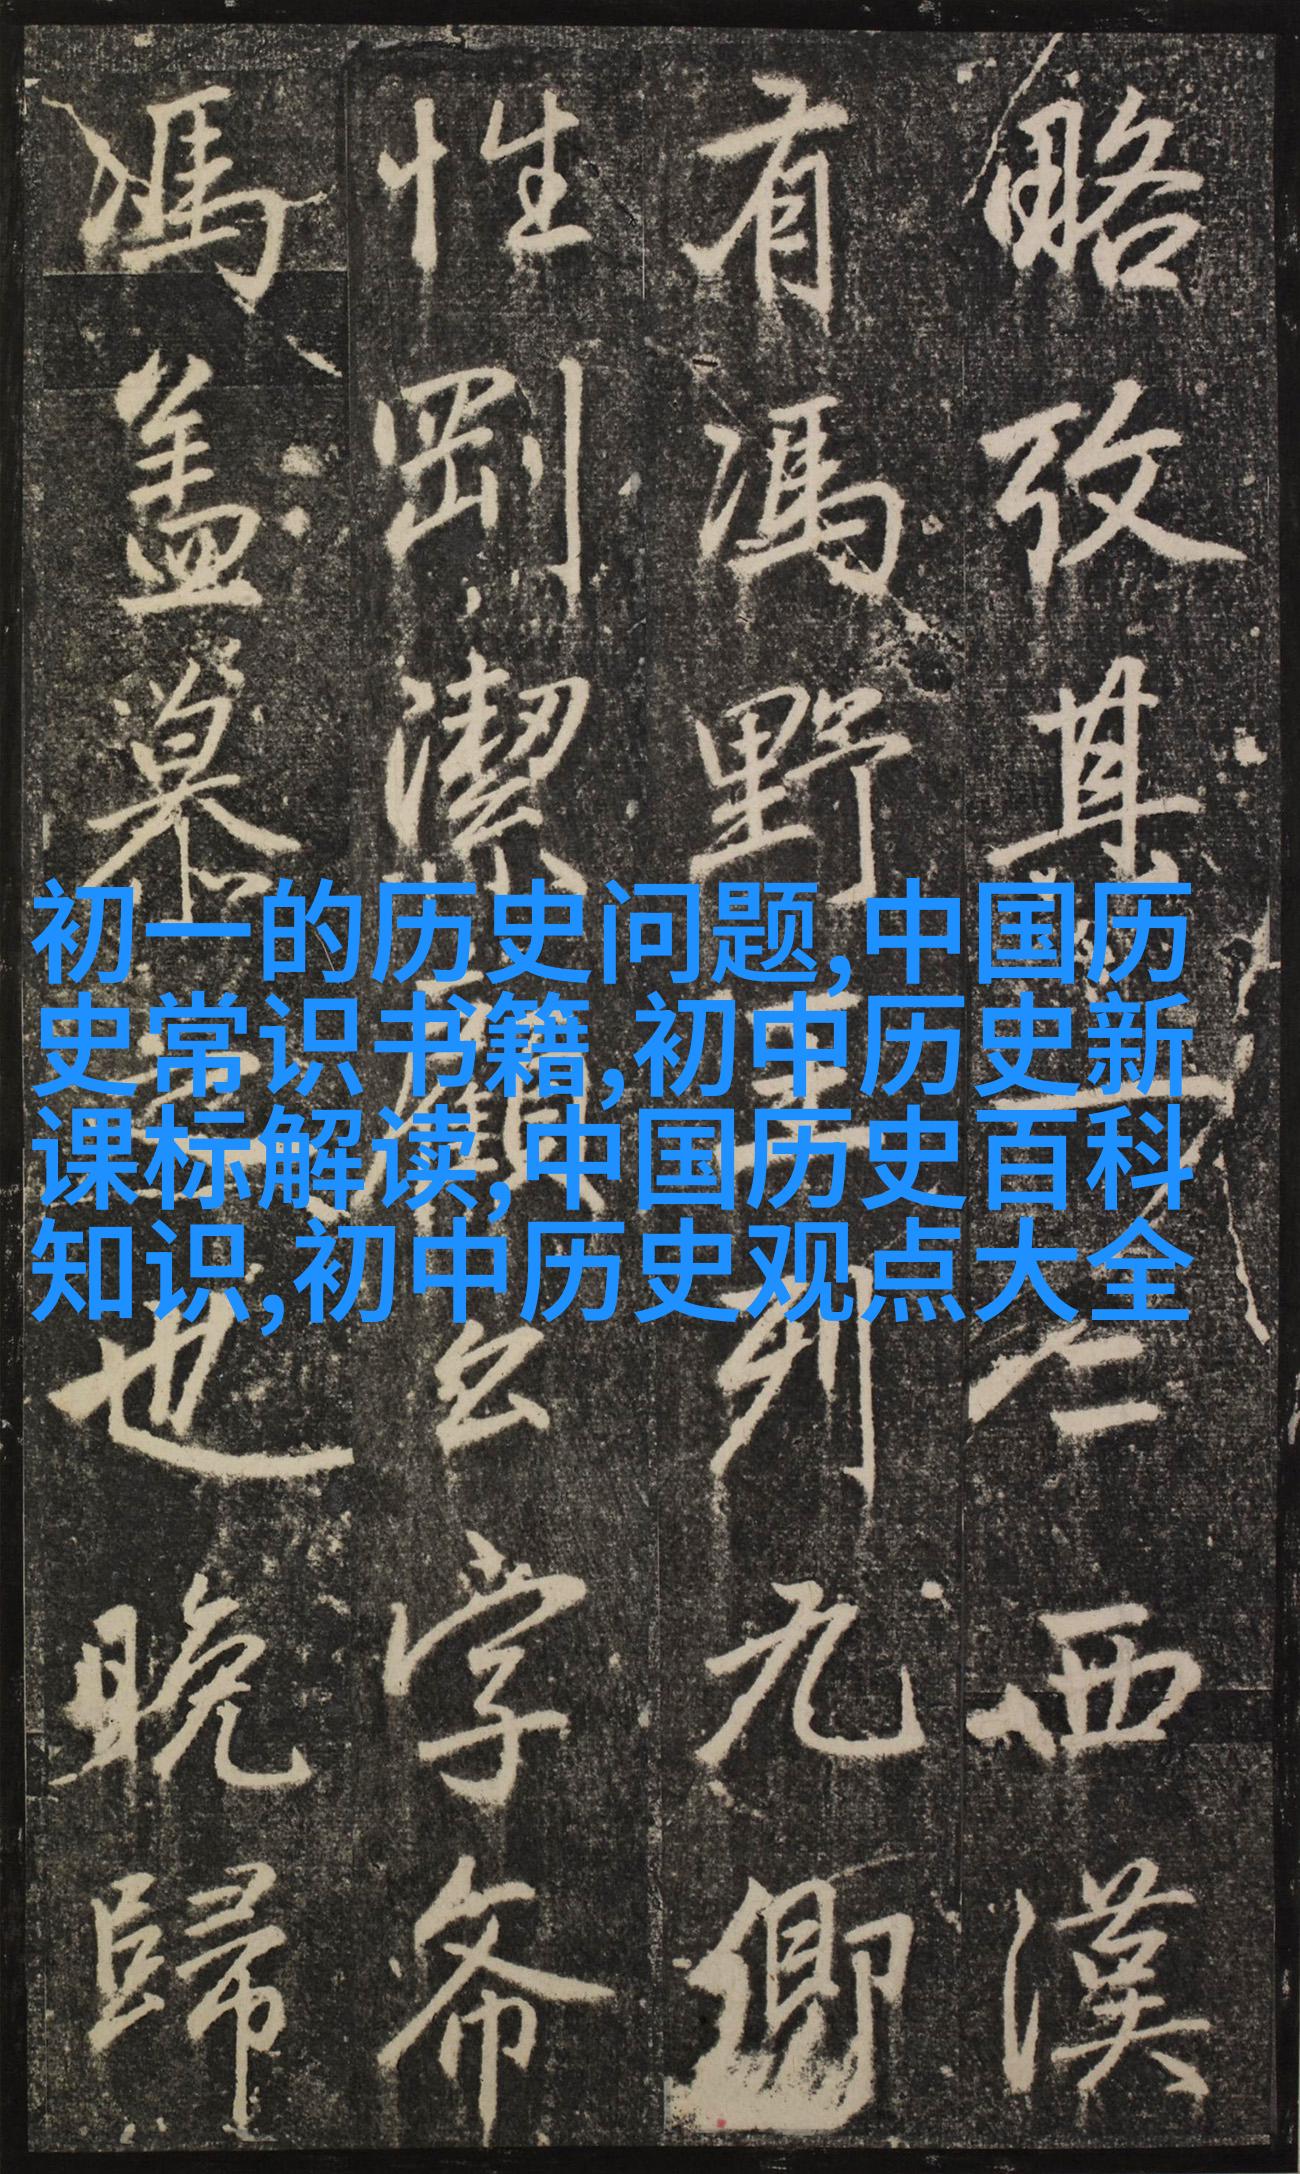 初一的历史问题,中国历
史常识书籍,初中历史新
课标解读,中国历史百科
知识,初中历史观点大全
略攷其西漢
有馮野王列九卿
性剛潔字
馮蓋慕也晚歸